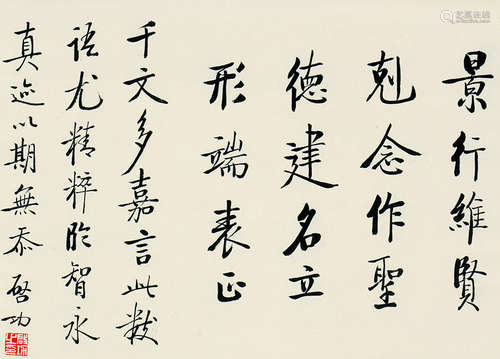 景行維賢
剋念作聖
德建名立
形端表正
千文多嘉言此數
語尤精粹臨智永
真迹以期無忝 啓功